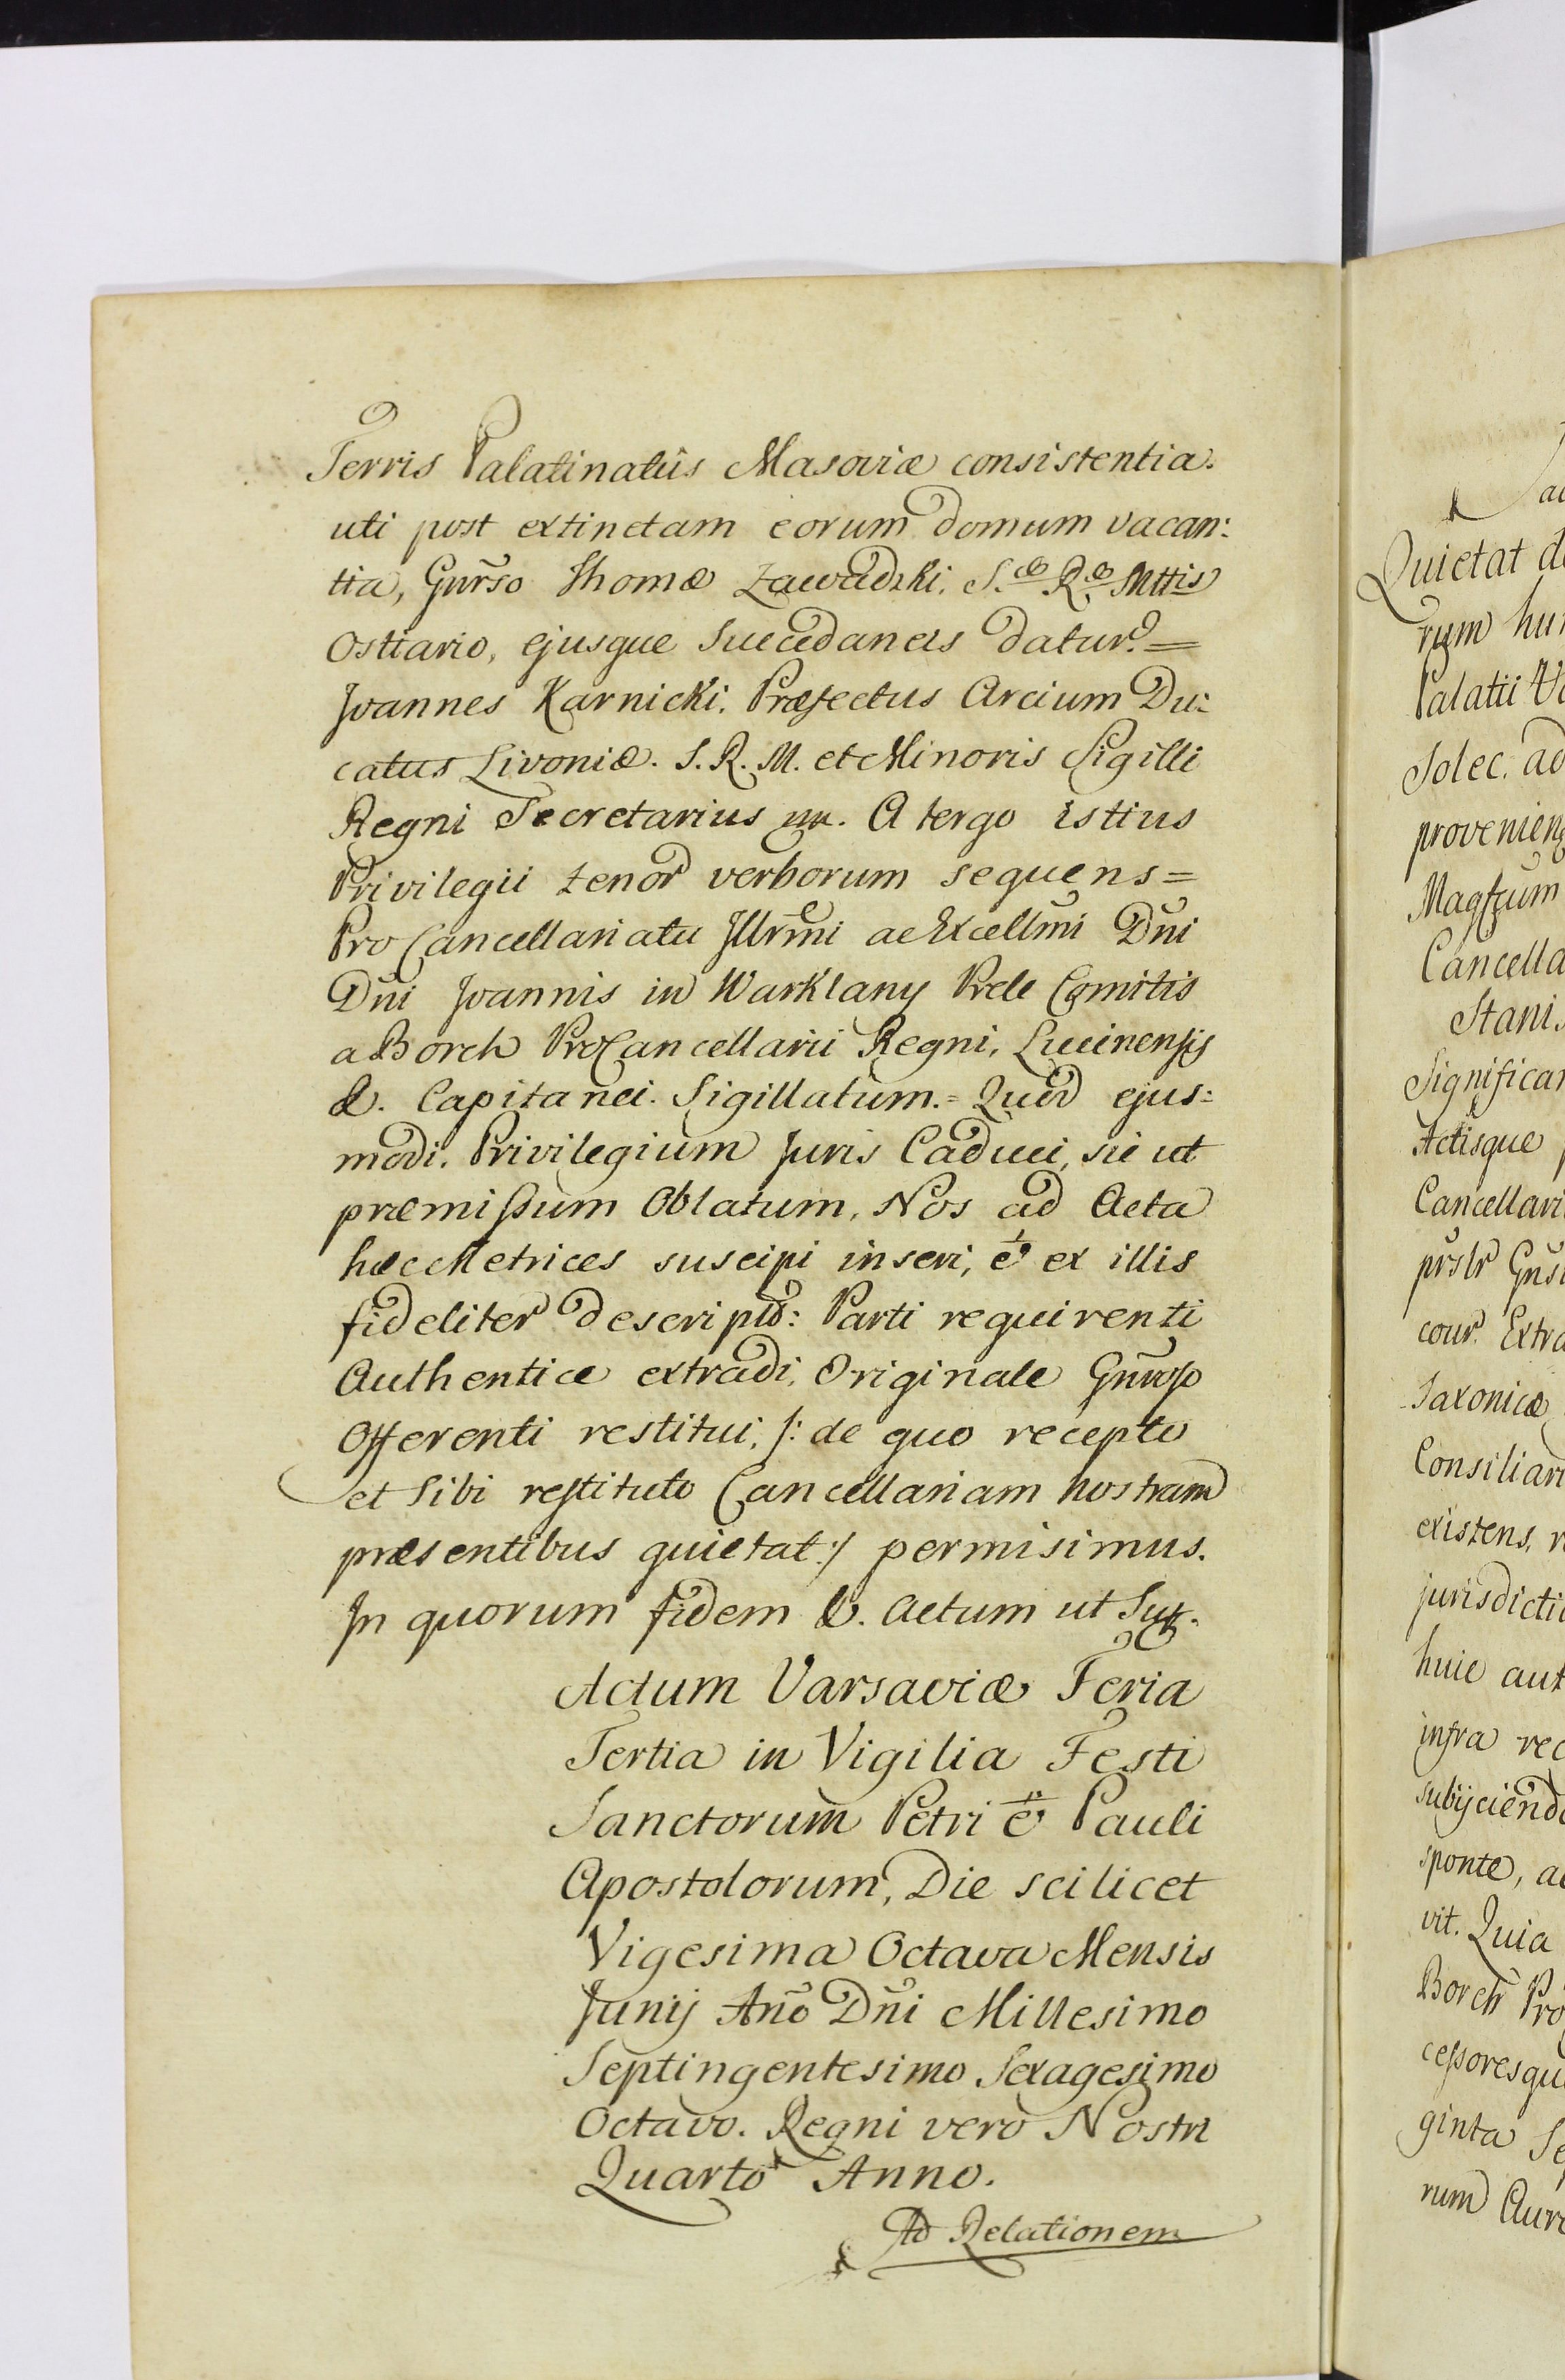 Terris Palatinatûs Masoviæ consistentia.
uti post extinctam eorum domum vacan:
tia, Gnrso Thomæ Zawadzki. S.æ R.æ Mttis
Ostiario, ejusque Succedaneis datur. =
Joannes Karnicki. Præfectus Arcium Du:
catus Livoniæ. S. R. M. et Minoris Sigilli
Regni Secretarius mp. A tergo istius
Privilegii tenor verborum sequens =
Pro Cancellariatu Illrmi ac Excellmi Dñi
Dñi Joannis in Warklany Prele Comitis
a Borch ProCancellarii Regni, Lucinensis
&. Capitanei. Sigillatum. = Quod ejus:
modi. Privilegium Juris Caduci, sic ut
præmissum Oblatum, Nos ad Acta
hæc Metrices suscipi inseri, et ex illis
fideliter descriptũ: Parti requirenti
Authentice extradi, Originale Gnroso
Offerenti restitui, /: de quo recepto
et Sibi restituto Cancellariam nostram
præsentibus quietat :/ permisimus.
In quorum fidem &. Actum ut Supr.
Actum Varsaviæ Feria
Tertia in Vigilia Festi
Sanctorum Petri et Pauli
Apostolorum, Die scilicet
Vigesima Octava Mensis
Junij Año Dñi Millesimo
Septingentesimo Sexagesimo
Octavo. Regni vero Nostri
Quarto Anno.
Ad Relationem
Quietat
rum
Palatii
Solec. ad
provenien
Cancella
Stani
Significa
Actisque
Cancellari
cour. Extra
Saxonicæ
Consiliari
existens,
jurisdicti
huic aut
infra rec
subijciendo
sponte, ac
vit. Quia
Borch Pro
cessoresqu
ginta Se
rum Aure